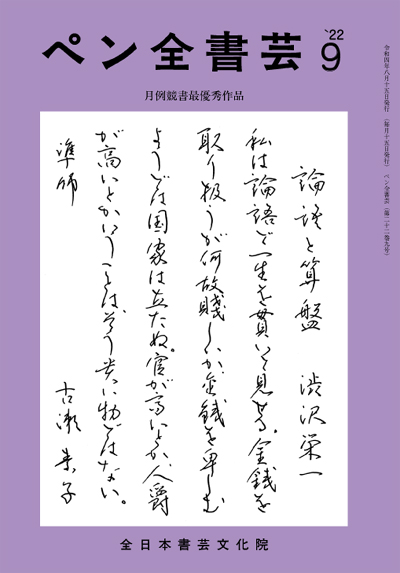 ペン全書芸
'22
9
月例競書最優秀作品
令和四年八月十五日発行（毎月十五日発行）ペン全書芸（第二十二巻九号）
論語と算盤　渋沢栄一
私は論語で一生を貫いて見せる。金銭を
取り扱うが何故賤しいか。金銭を卑しむ
ようでは国家は立たぬ。官が高いとか、人爵
が高いとかいうことは、そう尊い物ではない。
準師　古瀬
全日本書芸文化院